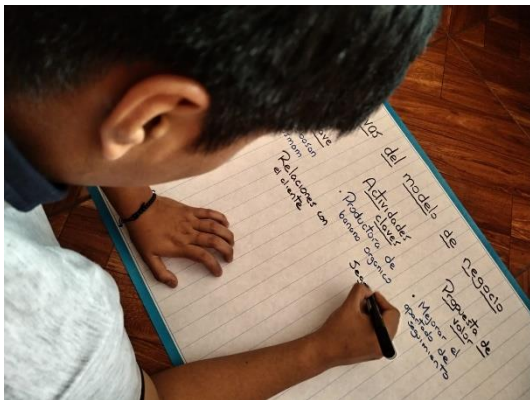 vas del modelo de negocio
ave
Relaciones con
el cliente
Actividades
claves
· Productora de
banano organico
Propuesta de
valor
· Mejorar el
apartado de
seguimiento